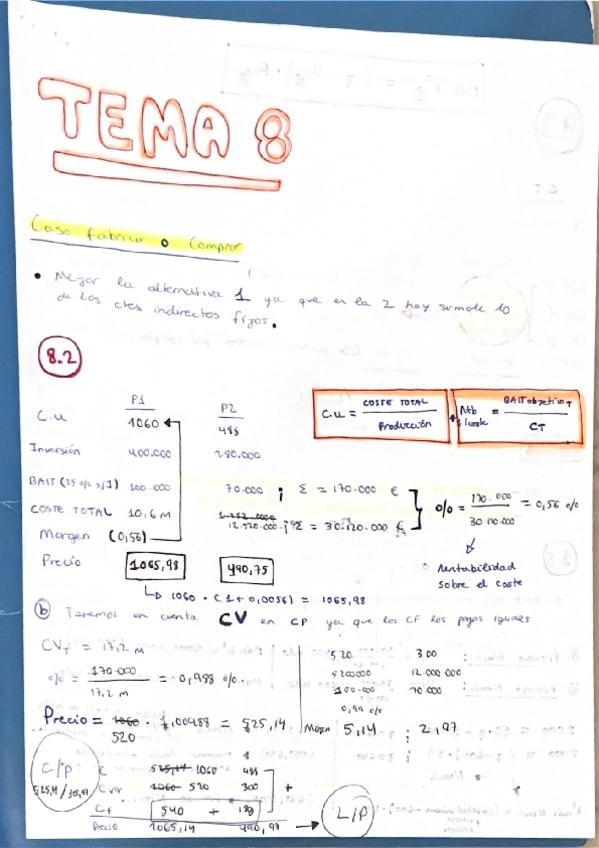 TEMA 8
Caso fabricar o comprar
• Mejor la alternativa 1 ya que en la 2 hay
de los ctes indirectos fijos.
8.2
P1 P2
C.U 1060 485
C.U = COSTE TOTAL / Producción
Rtb s/coste = BAIT objetivo T / CT
Inversión 400.000 280.000
BAIT (25 % s/I) 100.000 70.000 ; Σ = 170.000 €
COSTE TOTAL 10,6 M 12.520.000 ; Σ = 30.120.000 €
% = 170.000 / 30.120.000 = 0,56 %
Margen (0,56)
Precio 1065,98 490,75
Rentabilidad
sobre el coste
1060 · (1 + 0,0056) = 1065,98
b) Tenemos en cuenta CV en CP ya que los CF los pagas iguales
CVT = 17,2 M
% = 170.000 / 17,2 M = 0,988 %
520 300
5200000 12.000.000
100.000 70.000
0,99 %
Precio = 1060 · 1,00988 = 525,14
520
5,14 ; 2,97
C/P
C 525,14 1060 485
Cvar 1060 520 300 +
CF 540 + 189
Precio 1065,14 490,98 → L/P